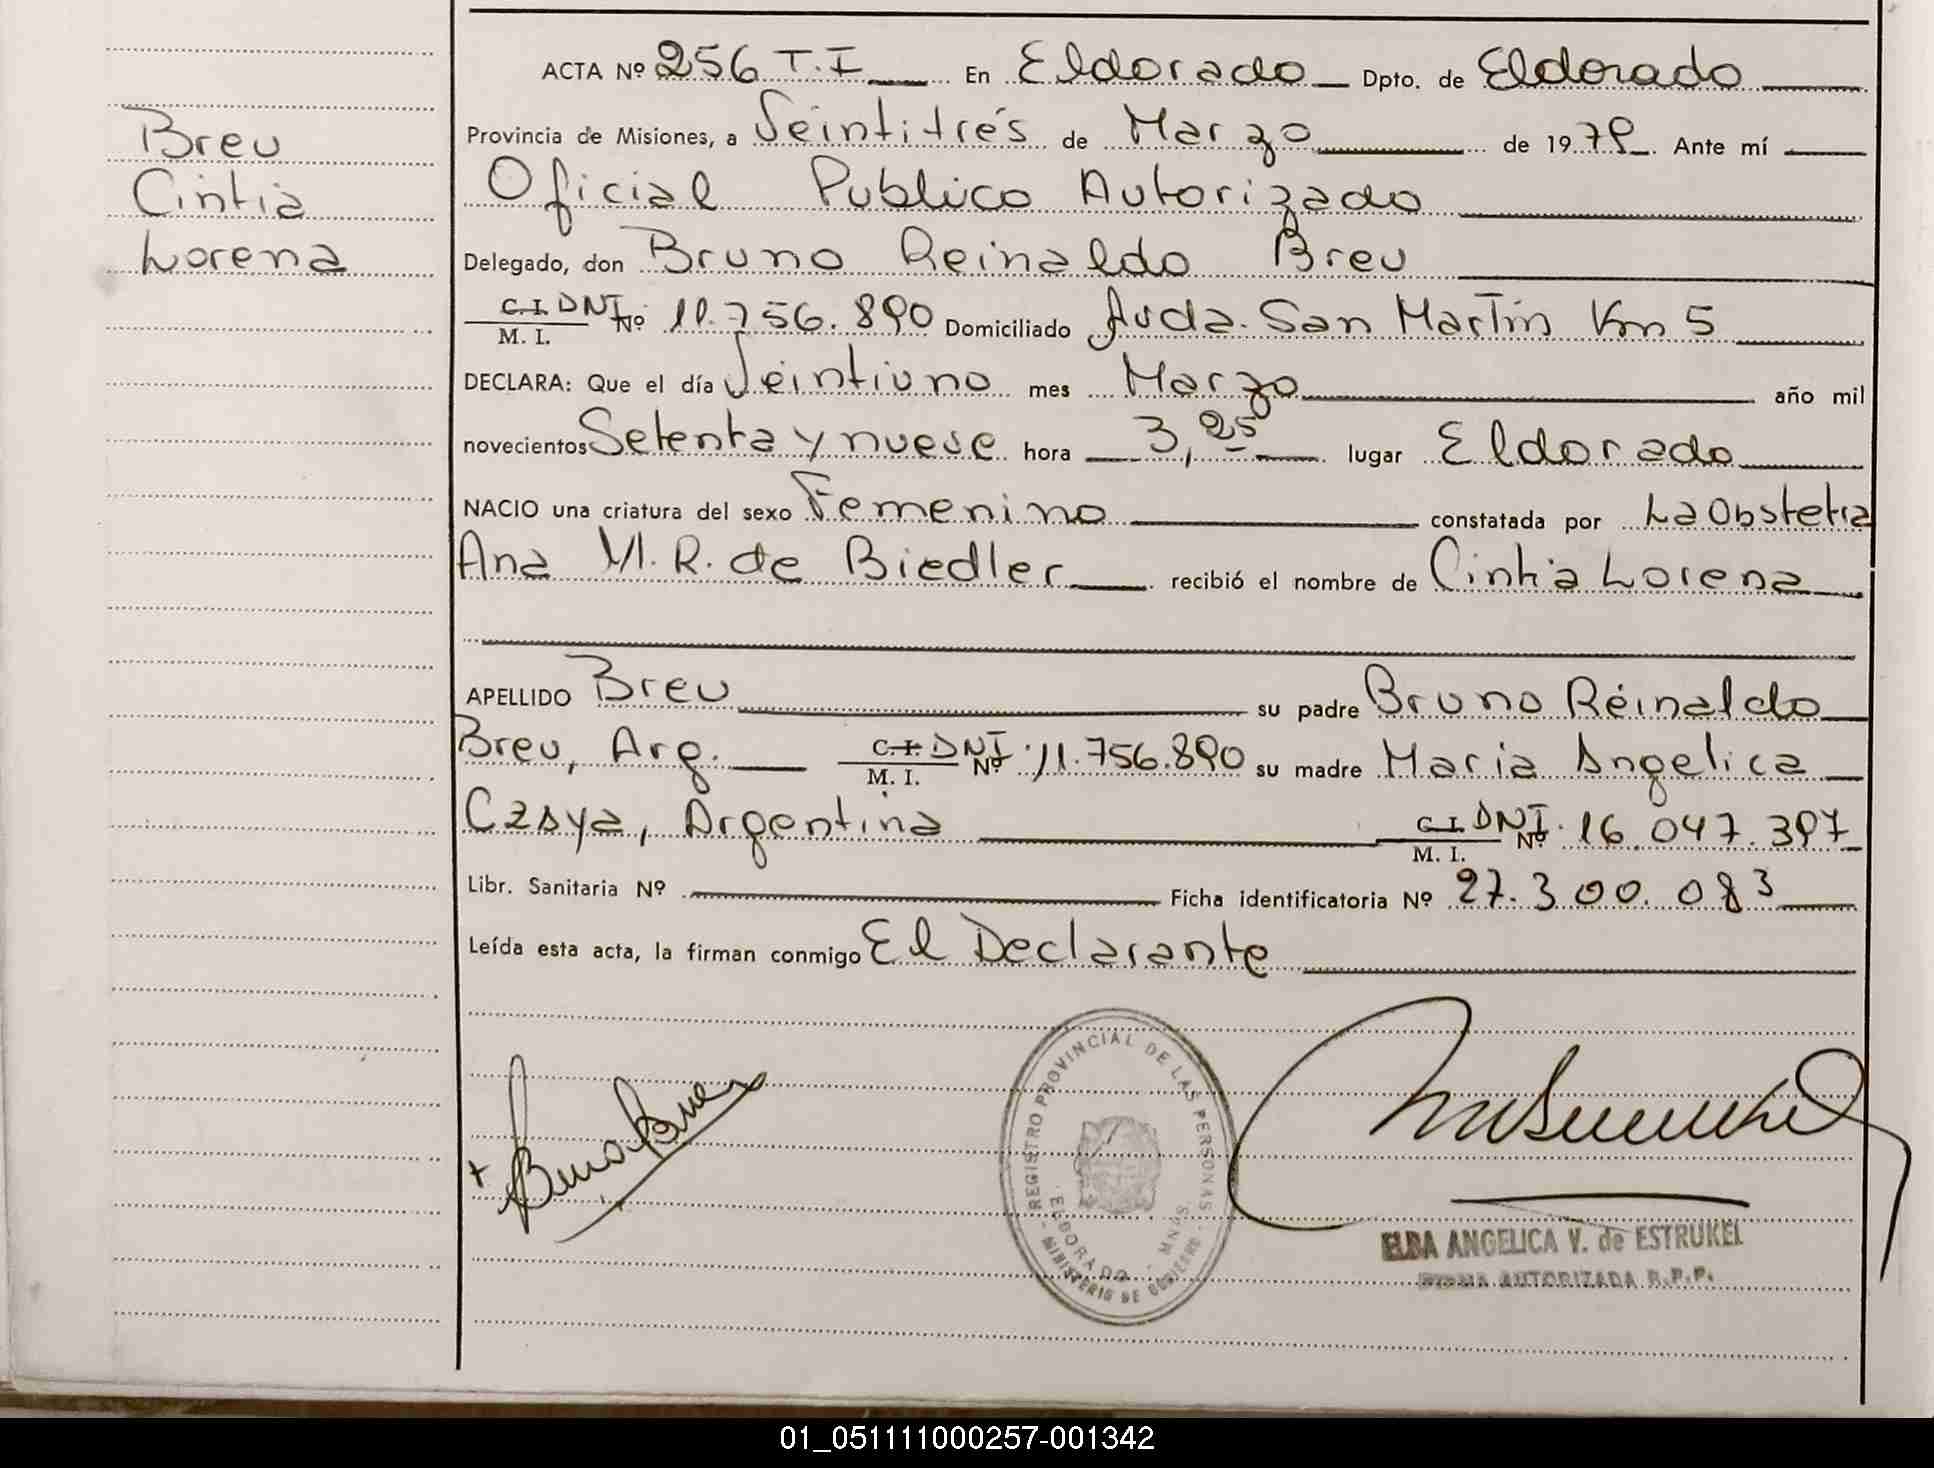 Breu
Cintia
Lorena
ACTA Nº 256 T.I En Eldorado Dpto. de Eldorado
Provincia de Misiones, a Veintitrés de Marzo de 1979. Ante mí
Oficial Publico Autorizado
Delegado, don Bruno Reinaldo Breu
C.I. DNI Nº 11.756.890 Domiciliado Avda. San Martín Km 5
M. I.
DECLARA: Que el día Veintiuno mes Marzo año mil
novecientos Setenta y nueve hora 3,25 lugar Eldorado
NACIO una criatura del sexo Femenino constatada por La Obstetra
Ana M. R. de Biedler recibió el nombre de Cintia Lorena
APELLIDO Breu su padre Bruno Reinaldo
Breu, Arg. C.I. DNI Nº 11.756.890 su madre Maria Angelica
M. I.
Argentina C.I. DNI Nº 16.047.397
M. I.
Libr. Sanitaria Nº Ficha identificatoria Nº 27.300.083
Leída esta acta, la firman conmigo El Declarante
REGISTRO PROVINCIAL DE LAS PERSONAS
ELDORADO - MNES.
MINISTERIO DE GOBIERNO
ELBA ANGELICA V. de ESTRUKEL
FIRMA AUTORIZADA R.P.P.
01_051111000257-001342